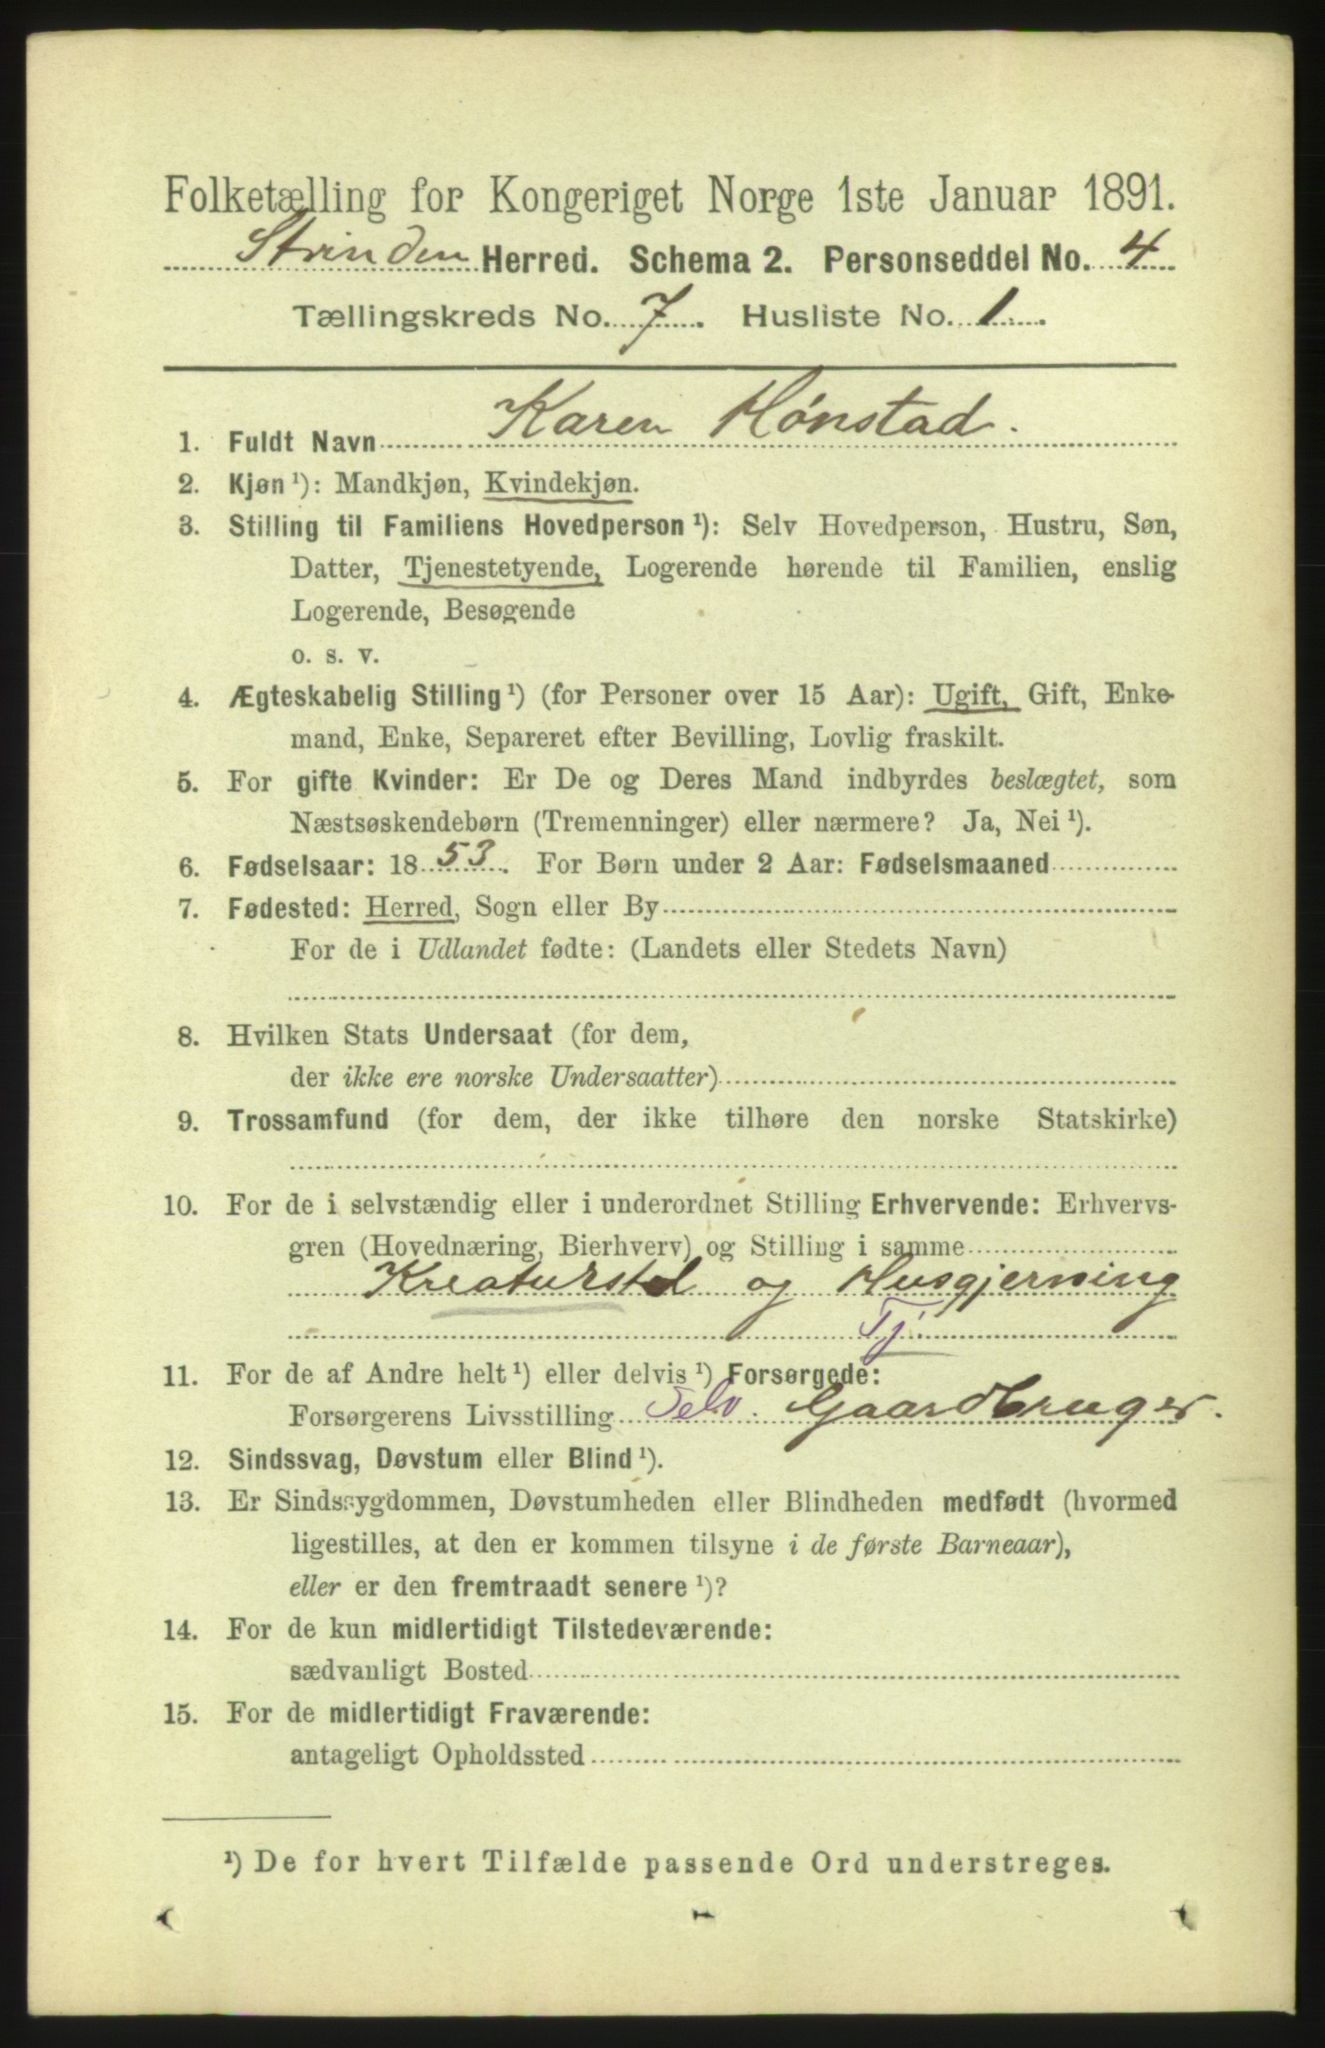 Folketælling for Kongeriget Norge 1ste Januar 1891.
Strinden Herred. Schema 2. Personseddel No. 4
Tællingskreds No. 7. Husliste No. 1.
1. Fuldt Navn Karen Hønstad.
2. Kjøn ¹): Mandkjøn, Kvindekjøn.
3. Stilling til Familiens Hovedperson ¹): Selv Hovedperson, Hustru, Søn,
Datter, Tjenestetyende, Logerende hørende til Familien, enslig
Logerende, Besøgende
o. s. v.
4. Ægteskabelig Stilling ¹) (for Personer over 15 Aar): Ugift, Gift, Enke-
mand, Enke, Separeret efter Bevilling, Lovlig fraskilt.
5. For gifte Kvinder: Er De og Deres Mand indbyrdes beslægtet, som
Næstsøskendebørn (Tremenninger) eller nærmere? Ja, Nei ¹).
6. Fødselsaar: 1853. For Børn under 2 Aar: Fødselsmaaned
7. Fødested: Herred, Sogn eller By
For de i Udlandet fødte: (Landets eller Stedets Navn)
8. Hvilken Stats Undersaat (for dem,
der ikke ere norske Undersaatter)
9. Trossamfund (for dem, der ikke tilhøre den norske Statskirke)
10. For de i selvstændig eller i underordnet Stilling Erhvervende: Erhvervs-
gren (Hovednæring, Bierhverv) og Stilling i samme
Kreaturstel og Husgjerning
Tj.
11. For de af Andre helt ¹) eller delvis ¹) Forsørgede:
Forsørgerens Livsstilling Selv. Gaardbruger.
12. Sindssvag, Døvstum eller Blind ¹).
13. Er Sindssygdommen, Døvstumheden eller Blindheden medfødt (hvormed
ligestilles, at den er kommen tilsyne i de første Barneaar),
eller er den fremtraadt senere ¹)?
14. For de kun midlertidigt Tilstedeværende:
sædvanligt Bosted
15. For de midlertidigt Fraværende:
antageligt Opholdssted
¹) De for hvert Tilfælde passende Ord understreges.